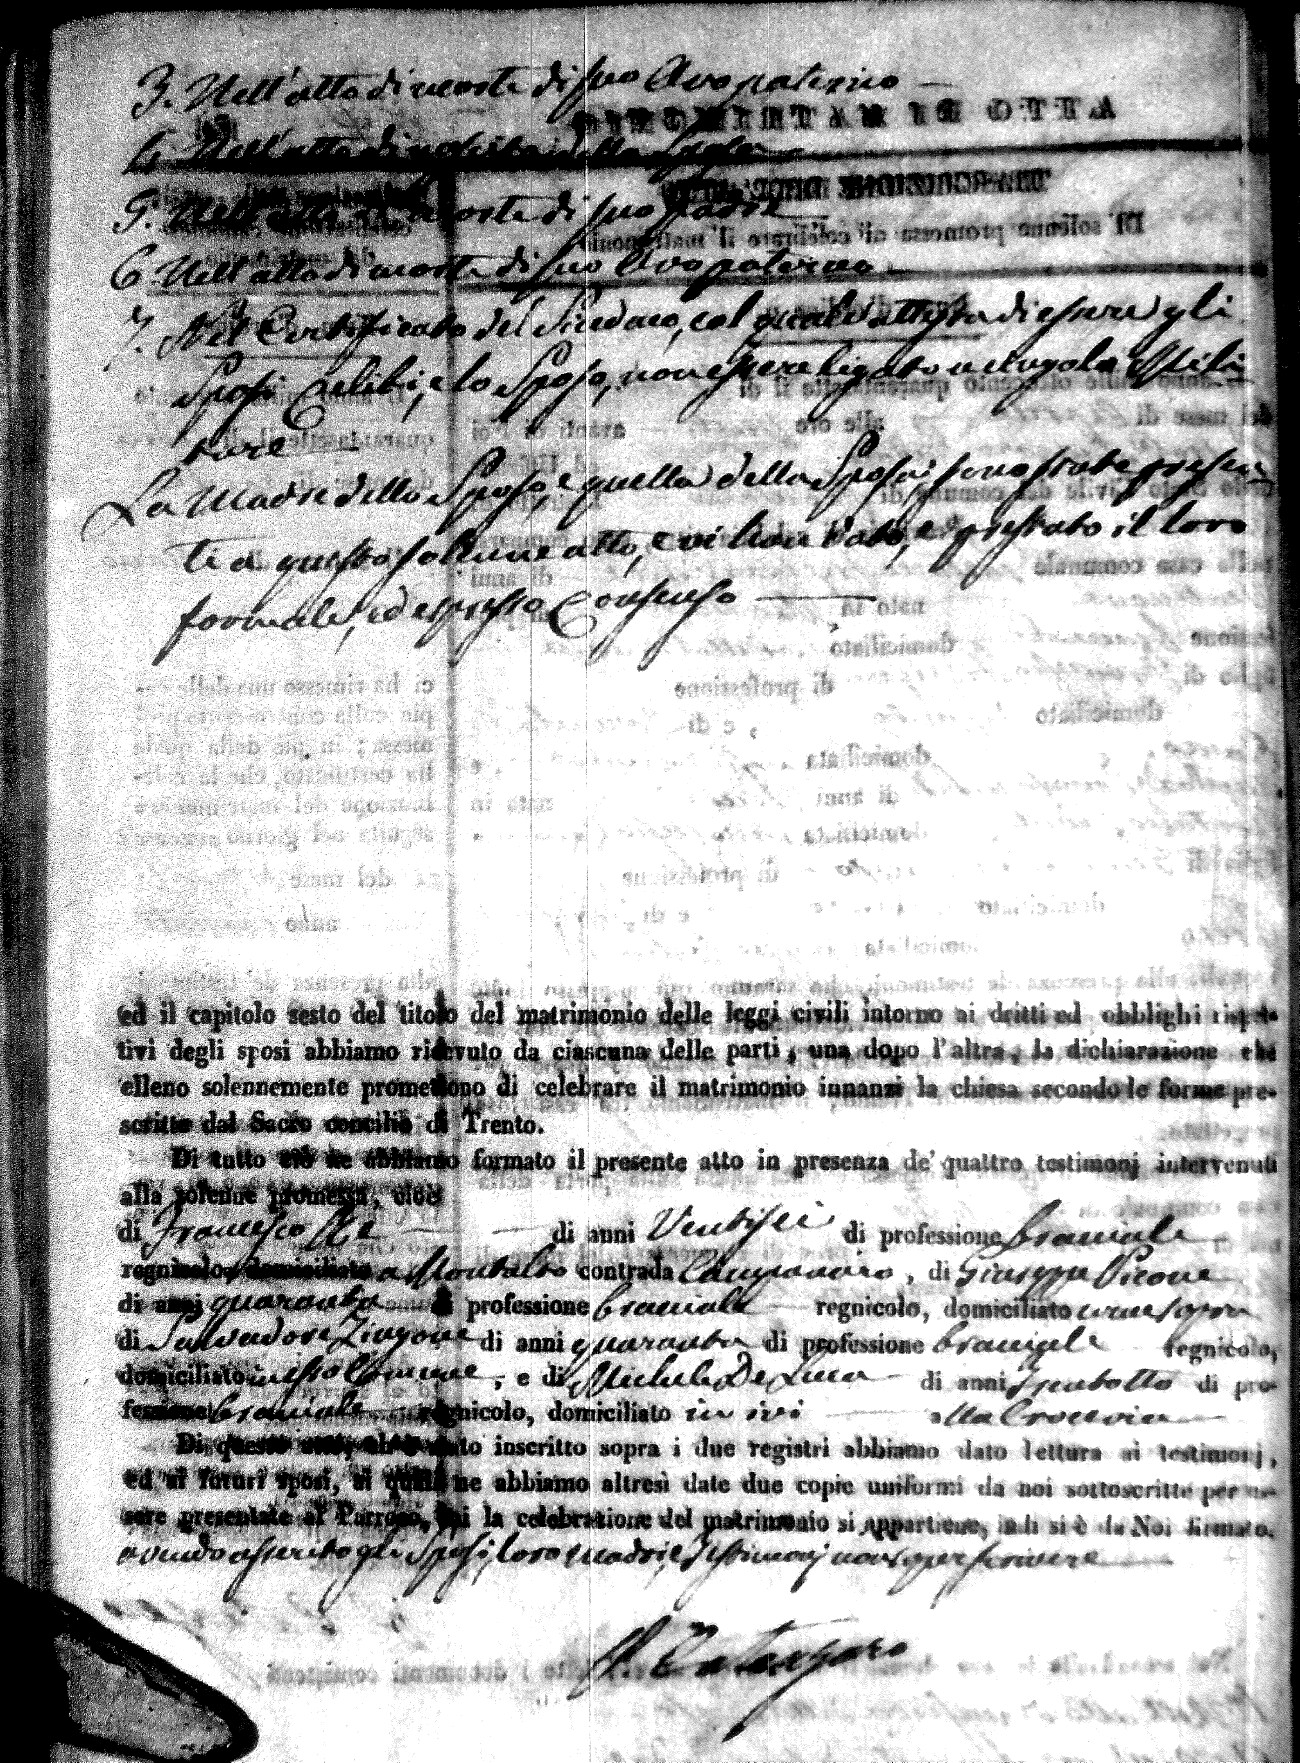 3. Nell'atto di morte di suo Avo paterno
4. Nell'atto di nascita della Sposa
5. Nell'atto di morte di suo padre
6. Nell'atto di morte di suo Avo paterno
7. Nel Certificato del Sindaco, col quale attesta di essere gli
Sposi Celibi, e lo Sposo, non essere ligato a veruna Mili
tare
La Madre dello Sposo, e quella della Sposa sono state presen
ti a questo solenne atto, e vi han dato, e prestato il loro
formale, ed espresso Consenso
ed il capitolo sesto del titolo del matrimonio delle leggi civili intorno ai dritti ed obblighi rispet-
tivi degli sposi abbiamo ricevuto da ciascuna delle parti, una dopo l'altra, la dichiarazione che
elleno solennemente promettono di celebrare il matrimonio innanzi la chiesa secondo le forme pre-
scritte dal Sacro concilio di Trento.
Di tutto ciò ne abbiamo formato il presente atto in presenza de' quattro testimonj intervenuti
alla solenne promessa, cioè
di Francesco Re di anni Ventisei di professione braciale
regnicolo, domiciliato a Montalto contrada Campanaro, di Giuseppe Picone
di anni quaranta di professione braciale regnicolo, domiciliato come sopra
di Salvadore Zingone di anni quaranta di professione braciale regnicolo,
domiciliato in esso Comune, e di Michele De Luca di anni trentotto di pro-
fessione braciale regnicolo, domiciliato in ivi alla Crocevia
Di questo atto, ch'è stato inscritto sopra i due registri abbiamo dato lettura ai testimonj,
ed ai futuri sposi, ai quali ne abbiamo altresì date due copie uniformi da noi sottoscritte per es-
sere presentate al Parroco, cui la celebrazione del matrimonio si appartiene, indi si è da Noi firmato,
avendo asserito gli Sposi, loro madri, e testimonj non saper scrivere
Catanzaro